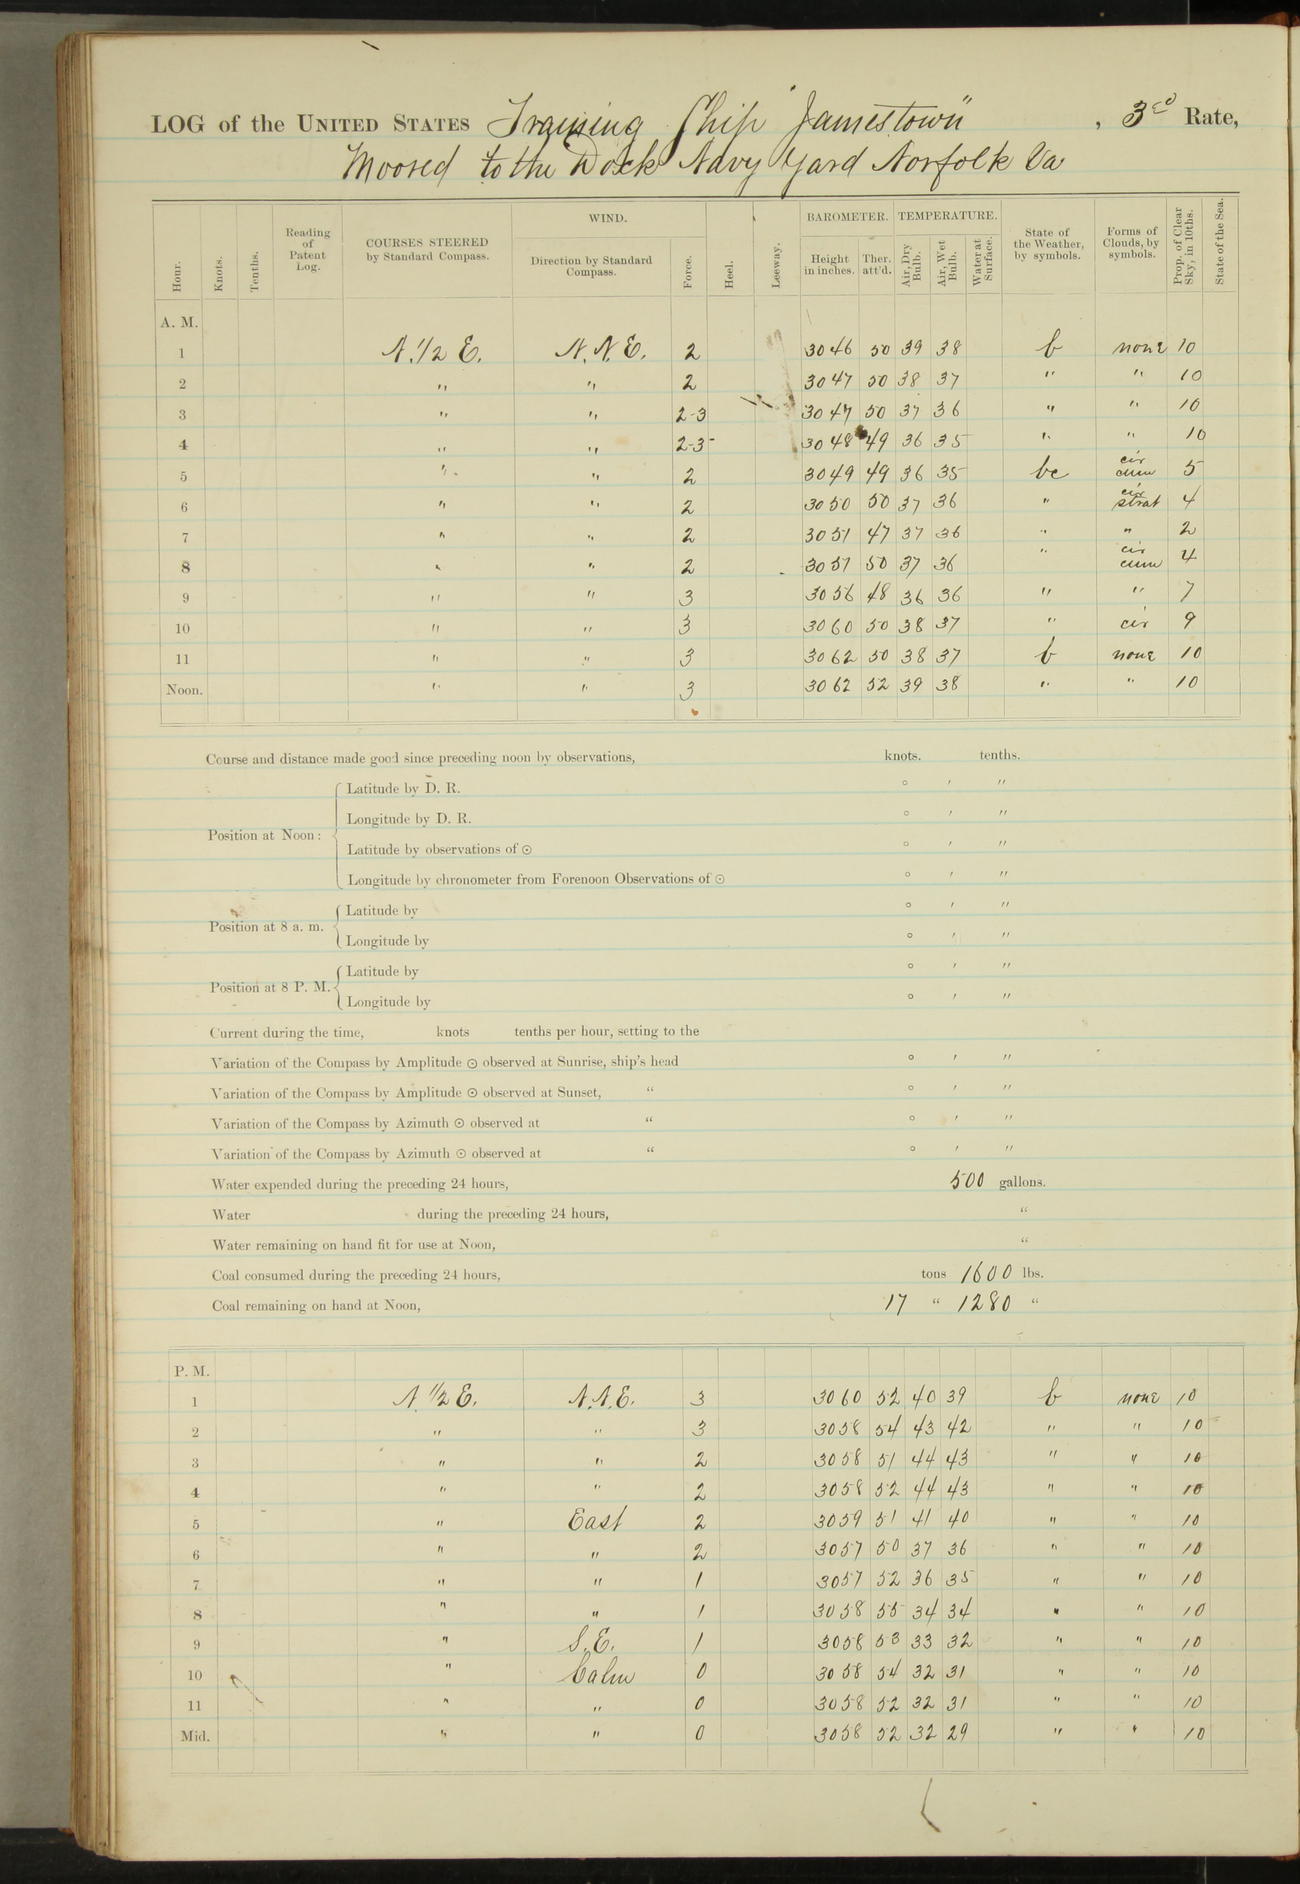 LOG of the UNITED STATES Training Ship "Jamestown", 3rd Rate,
Moored to the Dock Navy Yard Norfolk Va
Hour. Knots. Tenths. Reading of Patent Log. COURSES STEERED by Standard Compass. WIND. Direction by Standard Compass. Force. Heel. Leeway. BAROMETER. Height in inches. Ther. att'd. TEMPERATURE. Air, Dry Bulb. Air, Wet Bulb. Water at Surface. State of the Weather, by symbols. Forms of Clouds, by symbols. Prop. of Clear Sky, in 10ths. State of the Sea.
A. M.
1 N. 1/2 E. N. N. E. 2 30 46 50 39 38 b none 10
2 " " 2 30 47 50 38 37 " " 10
3 " " 2-3 30 47 50 37 36 " " 10
4 " " 2-3 30 48 49 36 35 " " 10
5 " " 2 30 49 49 36 35 bc cir cum 5
6 " " 2 30 50 50 37 36 " cir strat 4
7 " " 2 30 51 47 37 36 " " 2
8 " " 2 30 51 50 37 36 " cir cum 4
9 " " 3 30 56 48 36 36 " " 7
10 " " 3 30 60 50 38 37 " cir 9
11 " " 3 30 62 50 38 37 b none 10
Noon. " " 3 30 62 52 39 38 " " 10
Course and distance made good since preceding noon by observations, knots. tenths.
Position at Noon:
Latitude by D. R. ° ′ ″
Longitude by D. R. ° ′ ″
Latitude by observations of ⊙ ° ′ ″
Longitude by chronometer from Forenoon Observations of ⊙ ° ′ ″
Position at 8 a. m.
Latitude by ° ′ ″
Longitude by ° ′ ″
Position at 8 P. M.
Latitude by ° ′ ″
Longitude by ° ′ ″
Current during the time, knots tenths per hour, setting to the
Variation of the Compass by Amplitude ⊙ observed at Sunrise, ship's head ° ′ ″
Variation of the Compass by Amplitude ⊙ observed at Sunset, " ° ′ ″
Variation of the Compass by Azimuth ⊙ observed at " ° ′ ″
Variation of the Compass by Azimuth ⊙ observed at " ° ′ ″
Water expended during the preceding 24 hours, 500 gallons.
Water during the preceding 24 hours, "
Water remaining on hand fit for use at Noon, "
Coal consumed during the preceding 24 hours, tons 1600 lbs.
Coal remaining on hand at Noon, 17 " 1280 "
P. M.
1 N. 1/2 E. N. N. E. 3 30 60 52 40 39 b none 10
2 " " 3 30 58 54 43 42 " " 10
3 " " 2 30 58 51 44 43 " " 10
4 " " 2 30 58 52 44 43 " " 10
5 " East 2 30 59 51 41 40 " " 10
6 " " 2 30 57 50 37 36 " " 10
7 " " 1 30 57 52 36 35 " " 10
8 " " 1 30 58 55 34 34 " " 10
9 " S. E. 1 30 58 53 33 32 " " 10
10 " Calm 0 30 58 54 32 31 " " 10
11 " " 0 30 58 52 32 31 " " 10
Mid. " " 0 30 58 52 32 29 " " 10